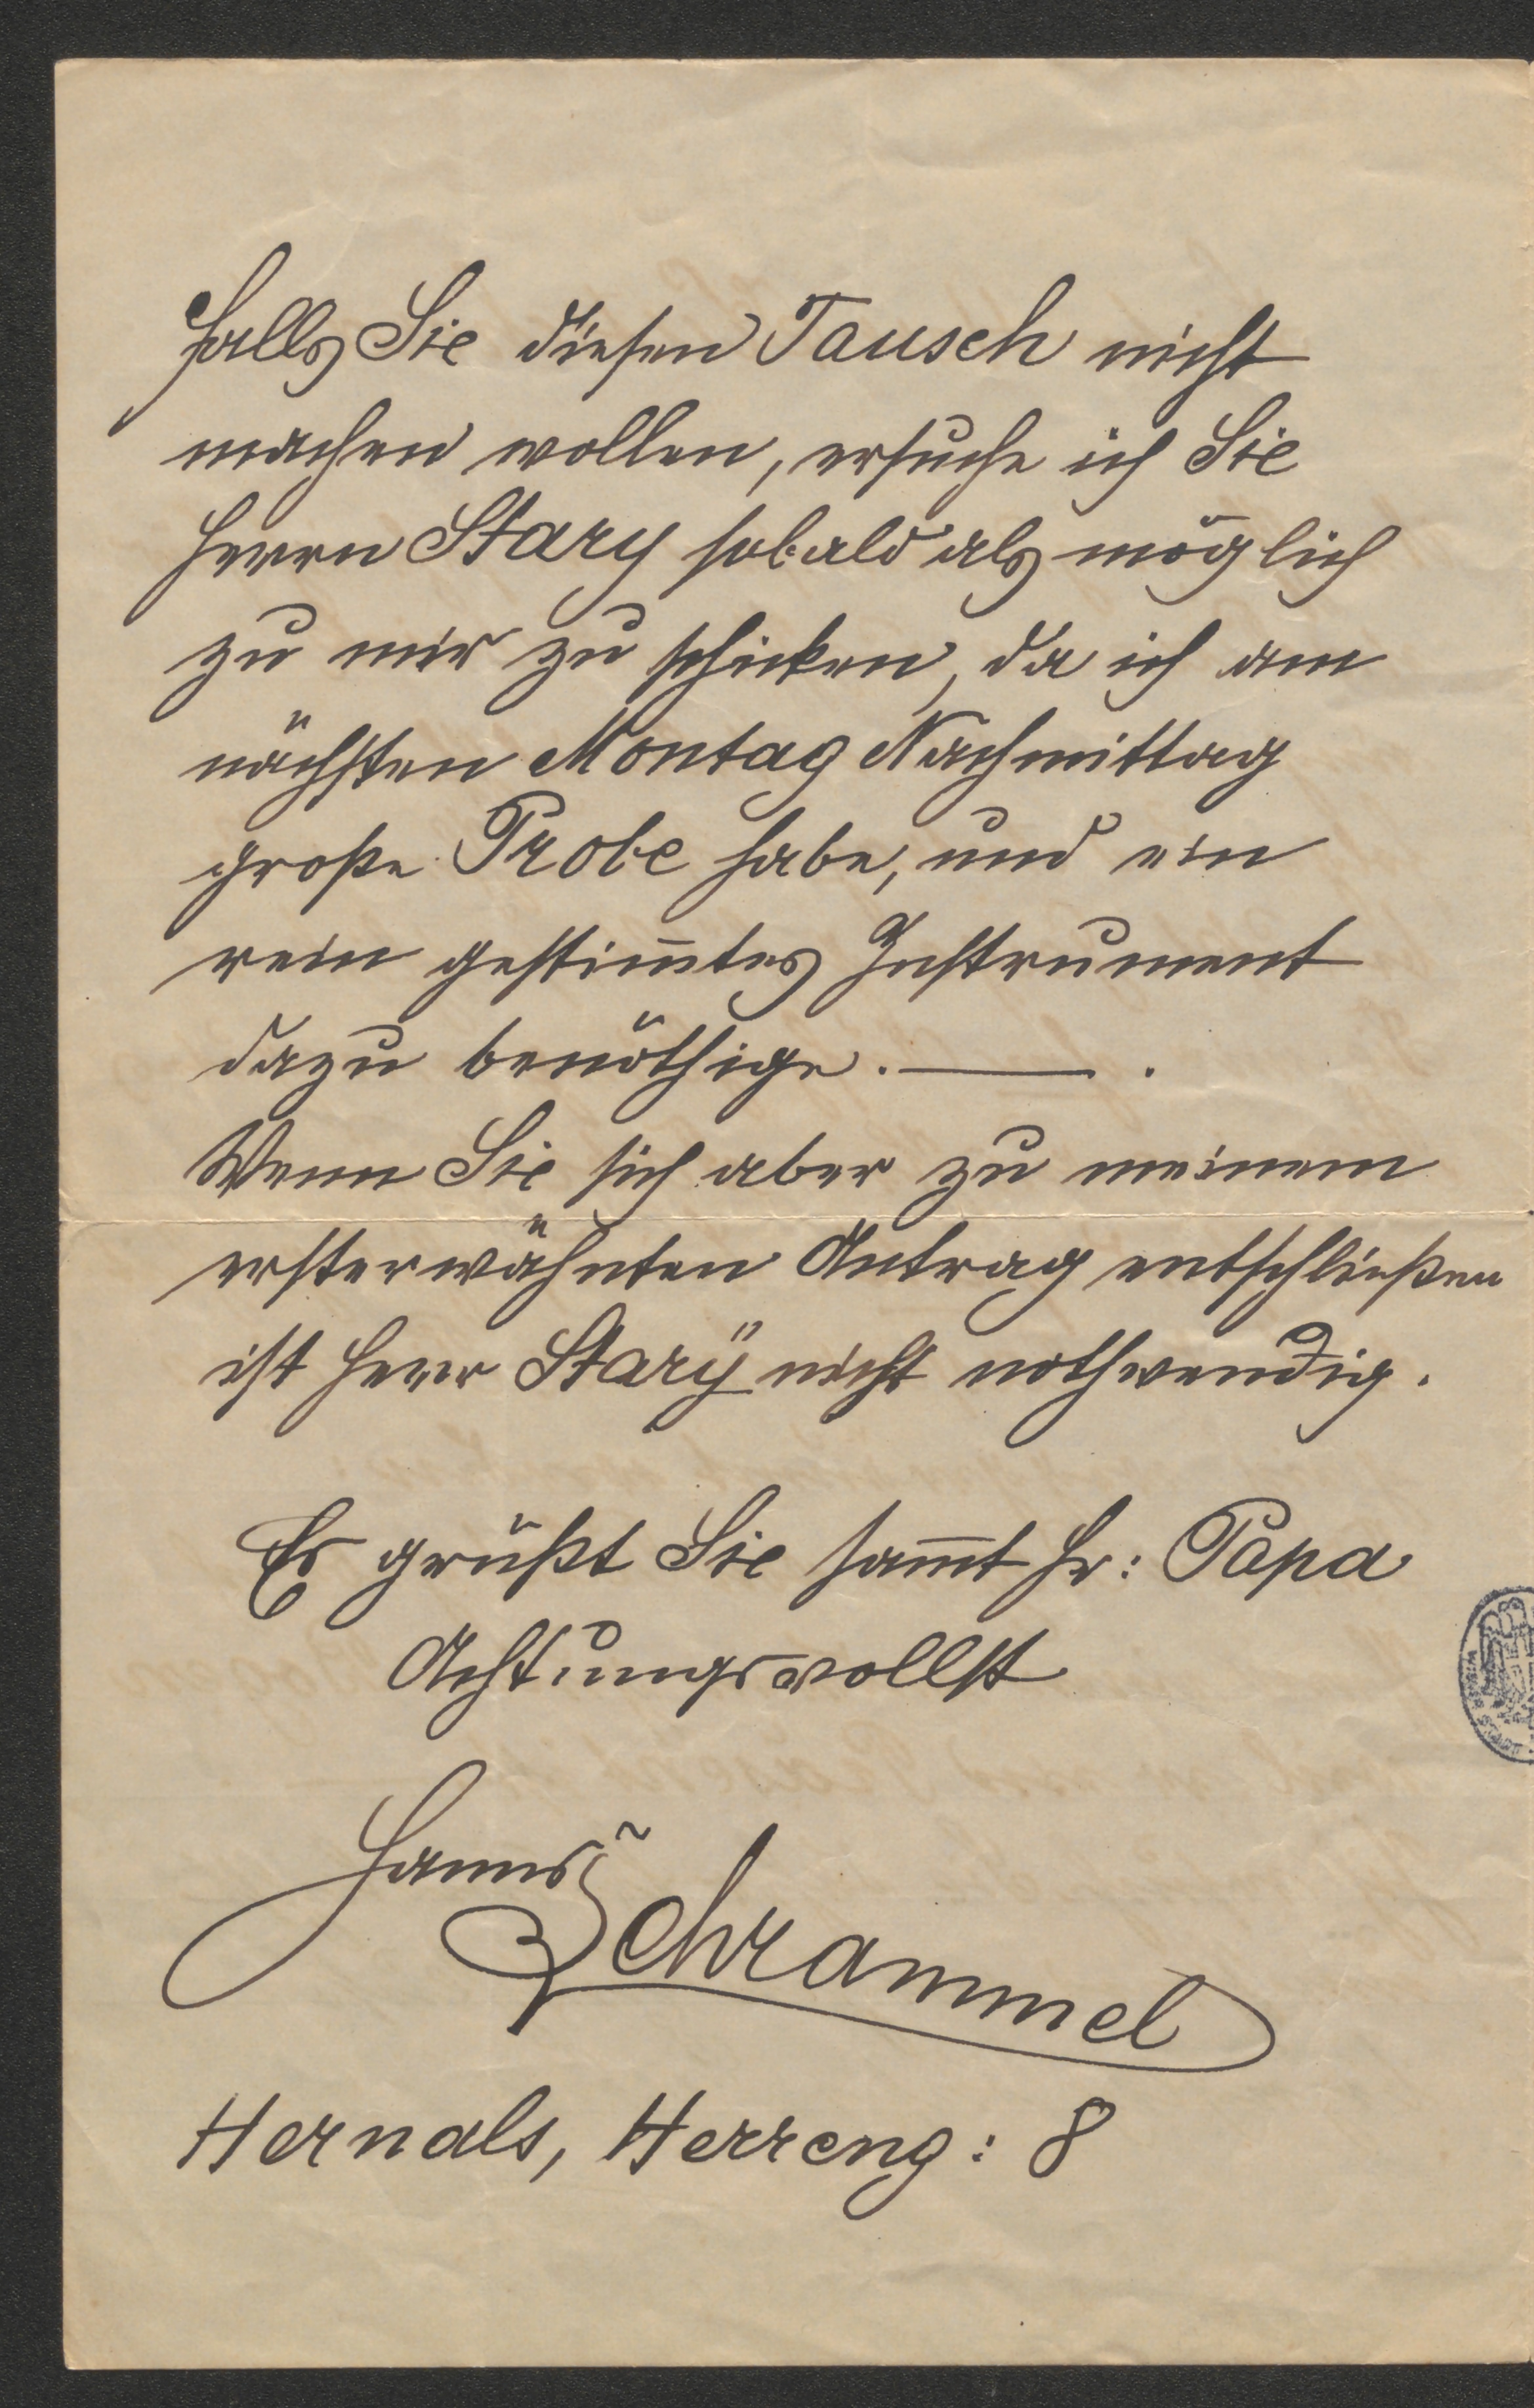 falls Sie diesen Tausch nicht
machen wollen, ersuche ich Sie
Herrn Stary sobald als möglich
zu mir zu schicken, da ich am
nächsten Montag Nachmittag
große Probe habe, und ein
rein gestim̄tes Instrument
dazu benöthige. — .
Wenn Sie sich aber zu meinem
ersterwähnten Antrag entschließen
ist Herr Starÿ nicht nothwendig.
Es grüßt Sie sam̄t Hr: Papa
Achtungsvollst
Hanns
Schrammel
Hernals, Herreng: 8